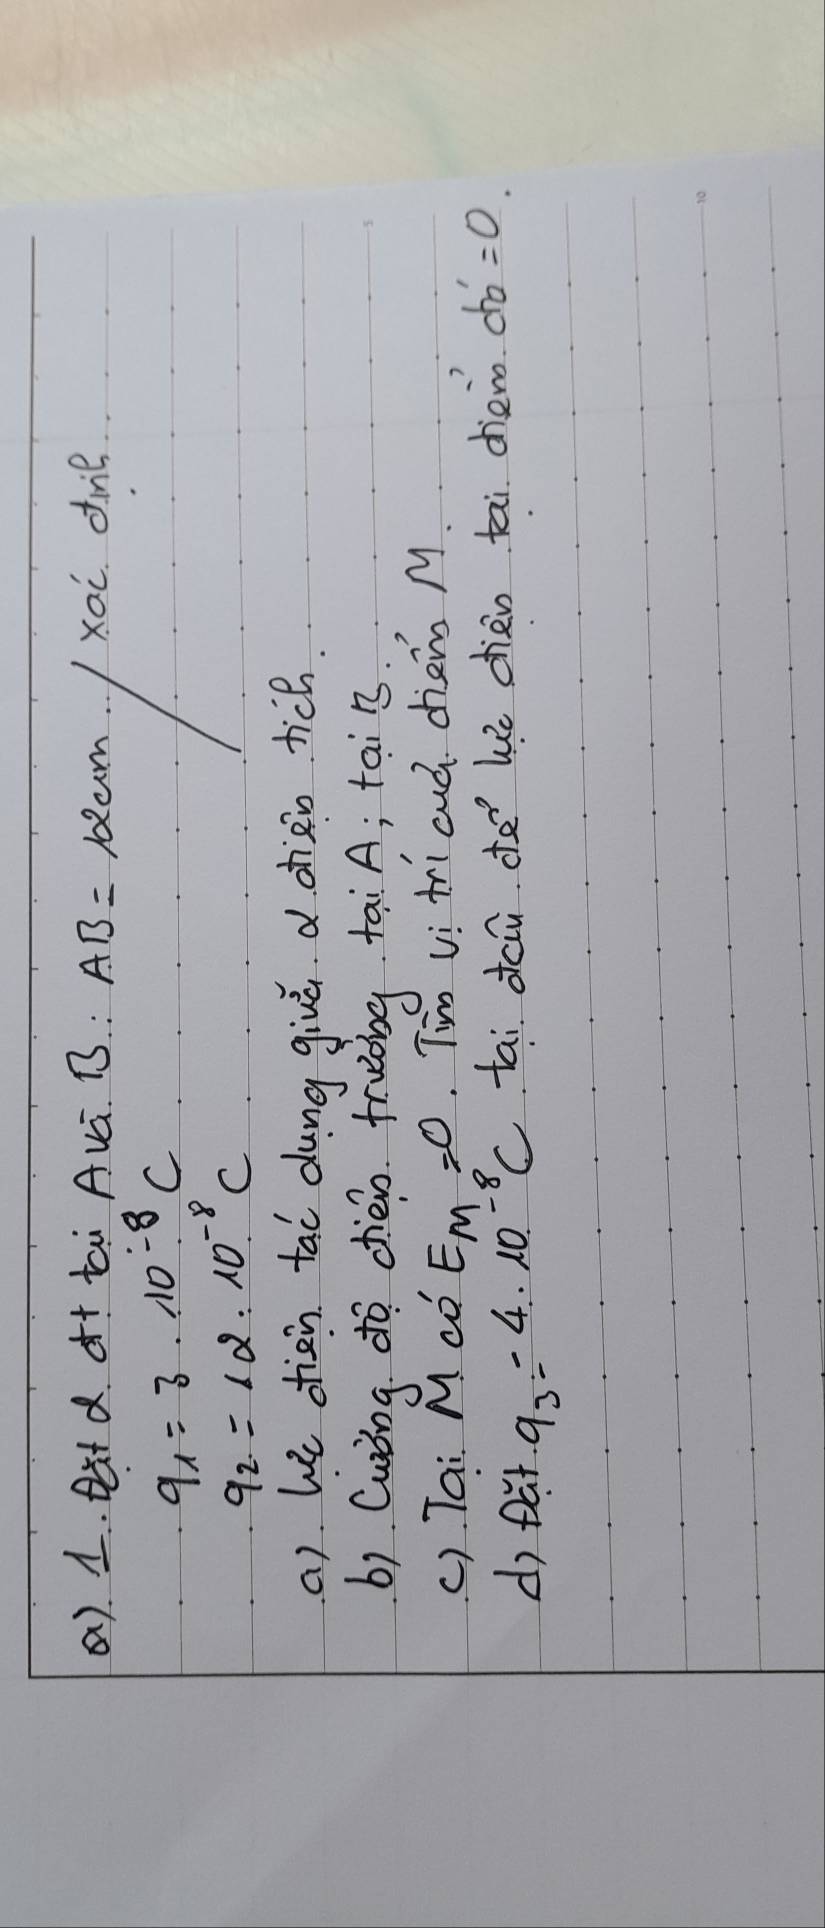 a) 1. Đặt 2 đt tại A và B. AB = 12cm / xác định
q₁ = 3 . 10⁻⁸ C
q₂ = 12 . 10⁻⁸ C
a) Lực điện tác dụng giữa 2 điện tích.
b) Cường độ điện trường tại A; tại B.
c) Tại M có E_M = 0. Tìm vị trí của điểm M.
d) Đặt q₃ = -4 . 10⁻⁸ C tại đâu để lực điện tại điểm đó = 0.
5
10